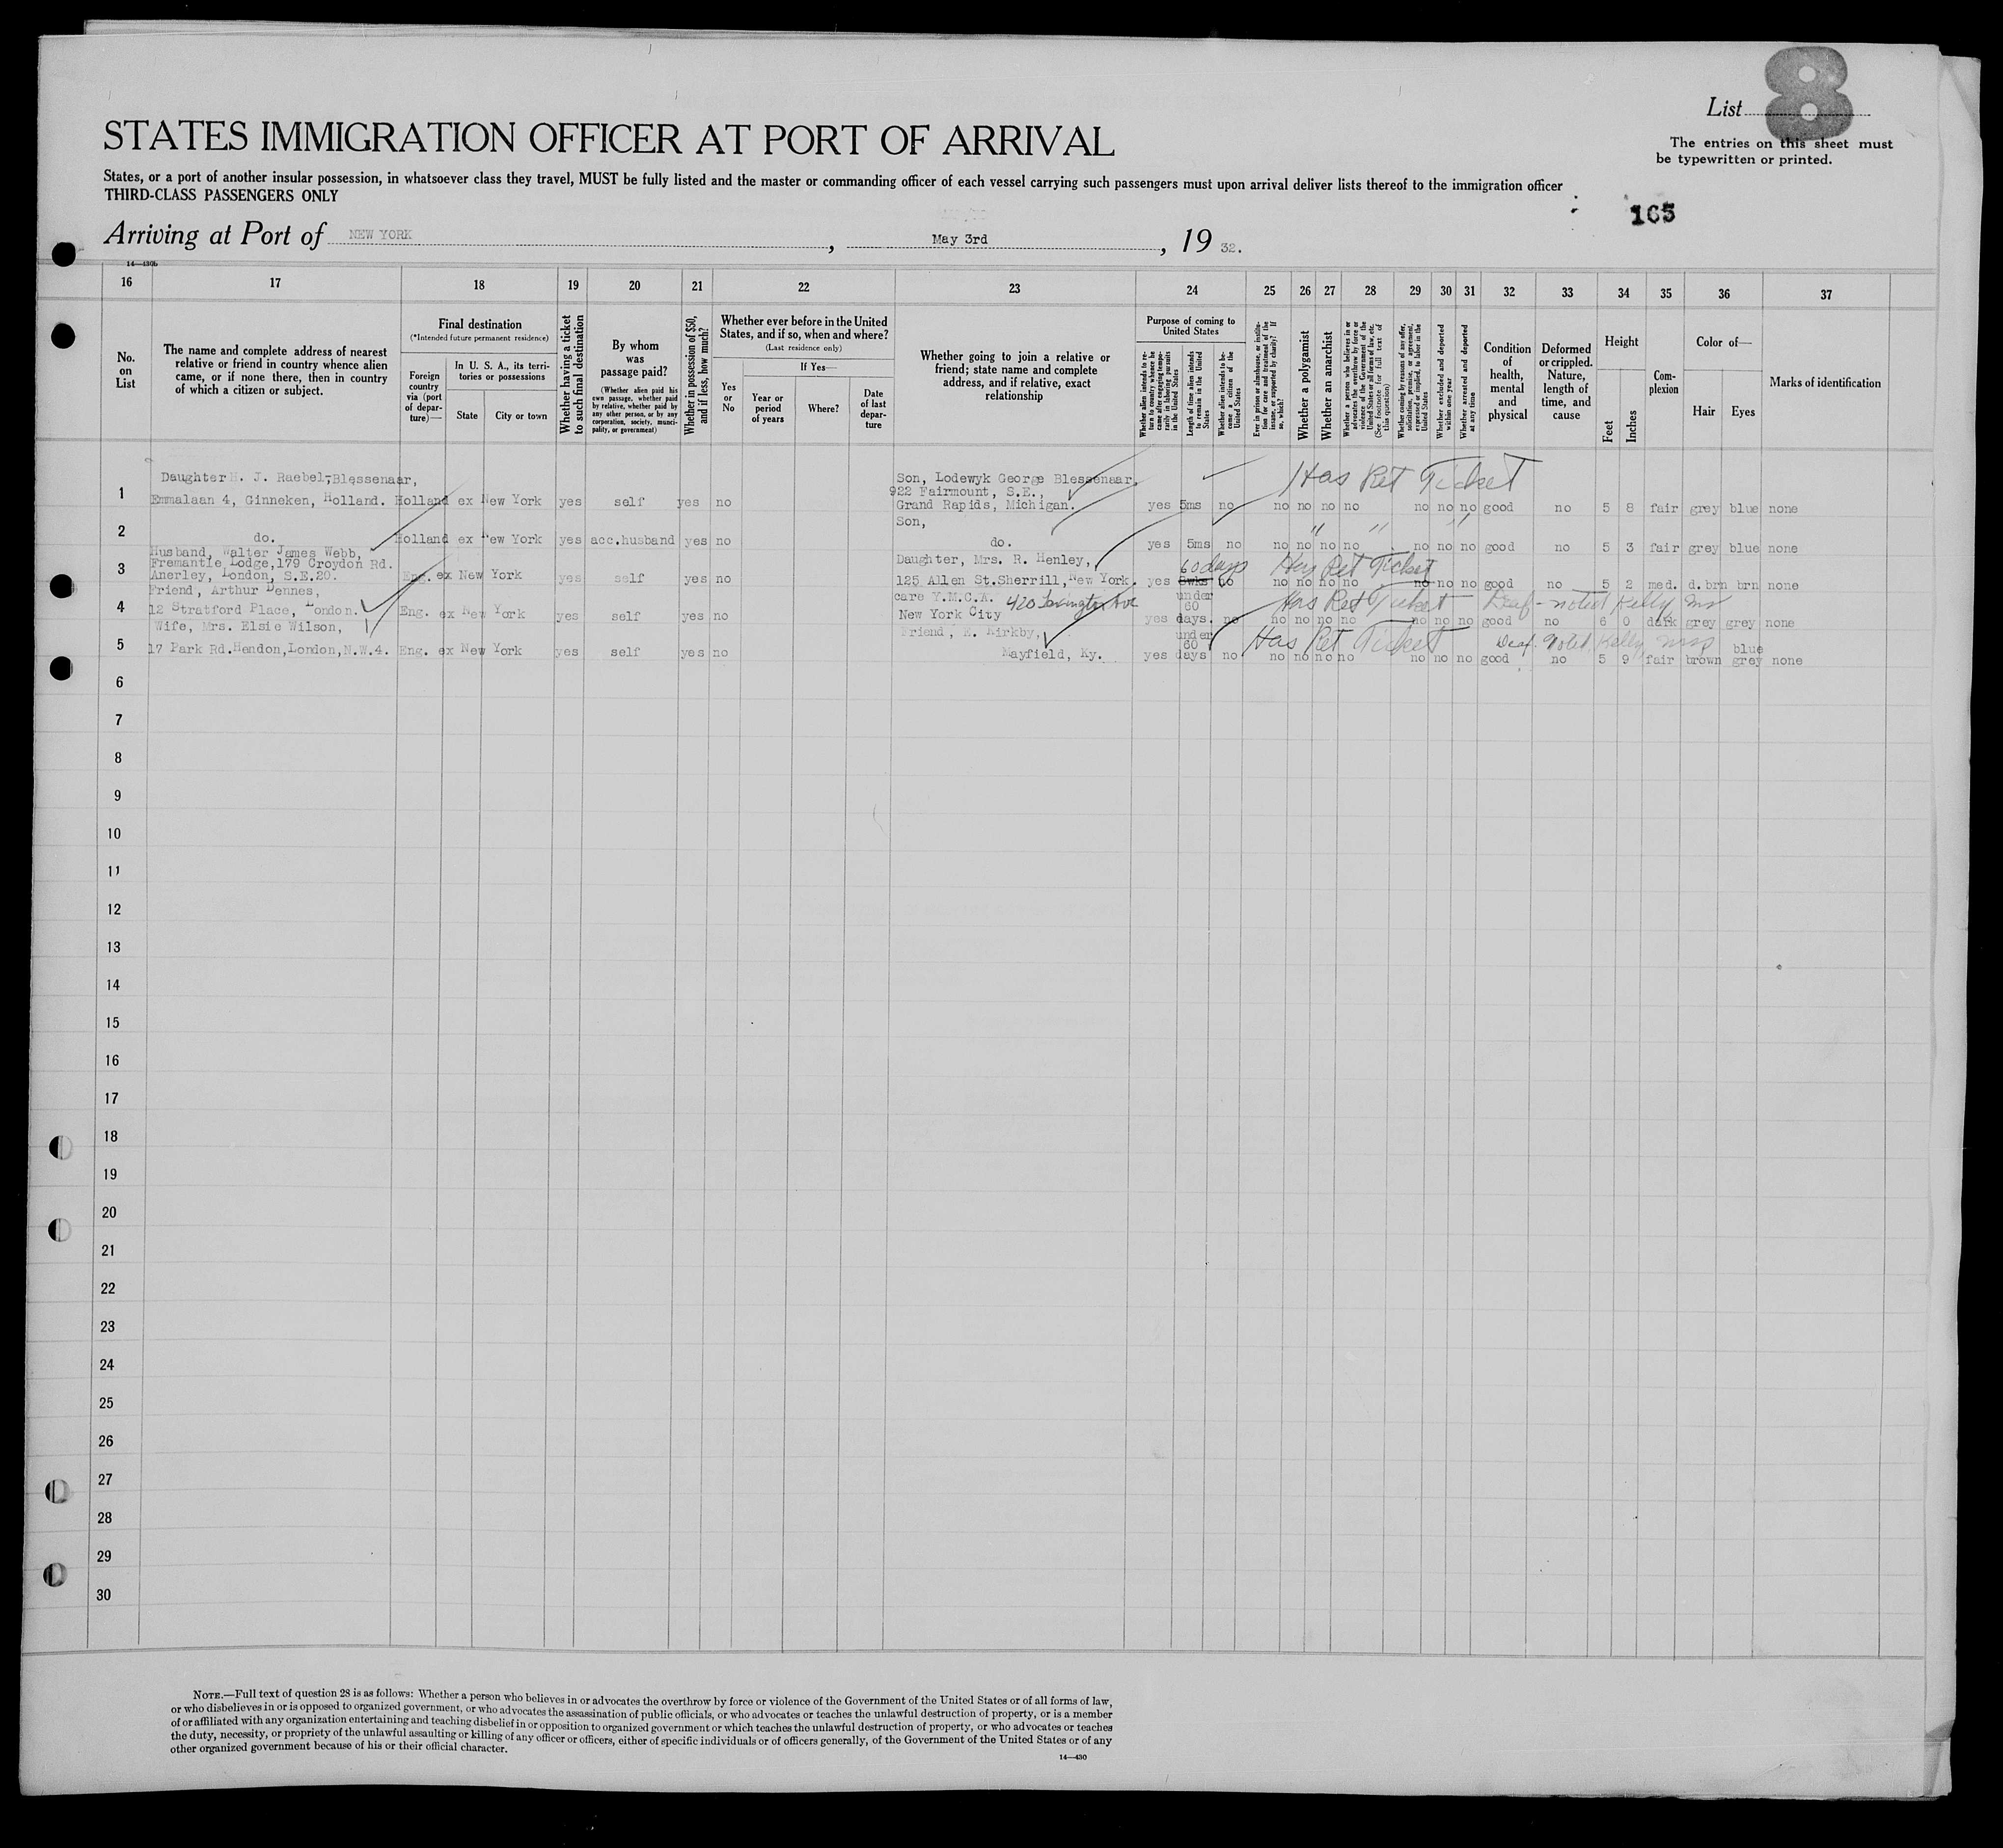 List 8
STATES IMMIGRATION OFFICER AT PORT OF ARRIVAL
The entries on this sheet must
be typewritten or printed.
States, or a port of another insular possession, in whatsoever class they travel, MUST be fully listed and the master or commanding officer of each vessel carrying such passengers must upon arrival deliver lists thereof to the immigration officer
THIRD-CLASS PASSENGERS ONLY
165
Arriving at Port of NEW YORK, May 3rd, 19 32.
14—430b
16 17 18 19 20 21 22 23 24 25 26 27 28 29 30 31 32 33 34 35 36 37
No. on List
The name and complete address of nearest relative or friend in country whence alien came, or if none there, then in country of which a citizen or subject.
Final destination
(*Intended future permanent residence)
Foreign country via (port of departure)—
In U. S. A., its territories or possessions
State
City or town
Whether having a ticket to such final destination
By whom was passage paid?
(Whether alien paid his own passage, whether paid by relative, whether paid by any other person, or by any corporation, society, municipality, or government)
Whether in possession of $50, and if less, how much?
Whether ever before in the United States, and if so, when and where?
(Last residence only)
Yes or No
If Yes—
Year or period of years
Where?
Date of last departure
Whether going to join a relative or friend; state name and complete address, and if relative, exact relationship
Purpose of coming to United States
Whether alien intends to return to country whence he came after engaging temporarily in laboring pursuits in the United States
Length of time alien intends to remain in the United States
Whether alien intends to become a citizen of the United States
Ever in prison or almshouse, or institution for care and treatment of the insane, or supported by charity? If so, which?
Whether a polygamist
Whether an anarchist
Whether a person who believes in or advocates the overthrow by force or violence of the Government of the United States or all forms of law, etc. (See footnote for full text of this question)
Whether coming by reason of any offer, solicitation, promise, or agreement, expressed or implied, to labor in the United States
Whether excluded and deported within one year
Whether arrested and deported at any time
Condition of health, mental and physical
Deformed or crippled. Nature, length of time, and cause
Height
Feet
Inches
Complexion
Color of—
Hair
Eyes
Marks of identification
Daughter H. J. Raebel-Blessenaar, Son, Lodewyk George Blessenaar, Has Ret Ticket
922 Fairmount, S.E.,
1 Emmalaan 4, Ginneken, Holland. Holland ex New York yes self yes no Grand Rapids, Michigan. yes 5ms no no no no no no no no good no 5 8 fair grey blue none
Son, " " "
2 do. Holland ex New York yes acc.husband yes no do. yes 5ms no no no no no no no no good no 5 3 fair grey blue none
Husband, Walter James Webb, Daughter, Mrs. R. Henley, 60 days Has Ret Ticket
Fremantle Lodge, 179 Croydon Rd.
3 Anerley, London, S.E.20. Eng. ex New York yes self yes no 125 Allen St. Sherrill, New York. yes 8wks no no no no no no no no good no 5 2 med. d.brn brn none
Friend, Arthur Dennes, care Y.M.C.A. 420 Lexington Ave under 60 Has Ret Ticket Deaf - noted Kelly
4 12 Stratford Place, London. Eng. ex New York yes self yes no New York City yes days. no no no no no no no no good no 6 0 dark grey grey none
Wife, Mrs. Elsie Wilson, Friend, E. Kirkby, under 60 Has Ret Ticket Deaf. Noted Kelly blue
5 17 Park Rd. Hendon, London, N.W.4. Eng. ex New York yes self yes no Mayfield, Ky. yes days no no no no no no no no good no 5 9 fair brown grey none
6
7
8
9
10
11
12
13
14
15
16
17
18
19
20
21
22
23
24
25
26
27
28
29
30
NOTE.—Full text of question 28 is as follows: Whether a person who believes in or advocates the overthrow by force or violence of the Government of the United States or of all forms of law,
or who disbelieves in or is opposed to organized government, or who advocates the assassination of public officials, or who advocates or teaches the unlawful destruction of property, or is a member
of or affiliated with any organization entertaining and teaching disbelief in or opposition to organized government or which teaches the unlawful destruction of property, or who advocates or teaches
the duty, necessity, or propriety of the unlawful assaulting or killing of any officer or officers, either of specific individuals or of officers generally, of the Government of the United States or of any
other organized government because of his or their official character.
14—430